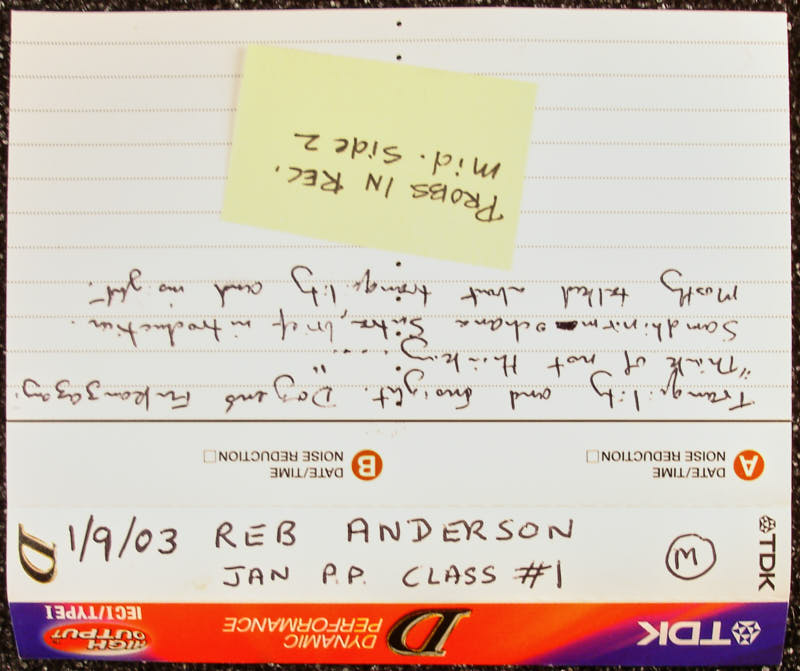 1/9/03 REB ANDERSON
JAN P.P. CLASS #1
M
TDK
D
TDK
D
DYNAMIC
PERFORMANCE
HIGH
OUTPUT
IECI/TYPEI
A
DATE/TIME
NOISE REDUCTION
B
DATE/TIME
NOISE REDUCTION
Tranquility and Insight. Dogen's
"Think of not thinking" ....
Sandhinirmochana Sutra, brief introduction.
Mostly talked about tranquility and insight.
PROBS IN REC.
Mid. Side 2